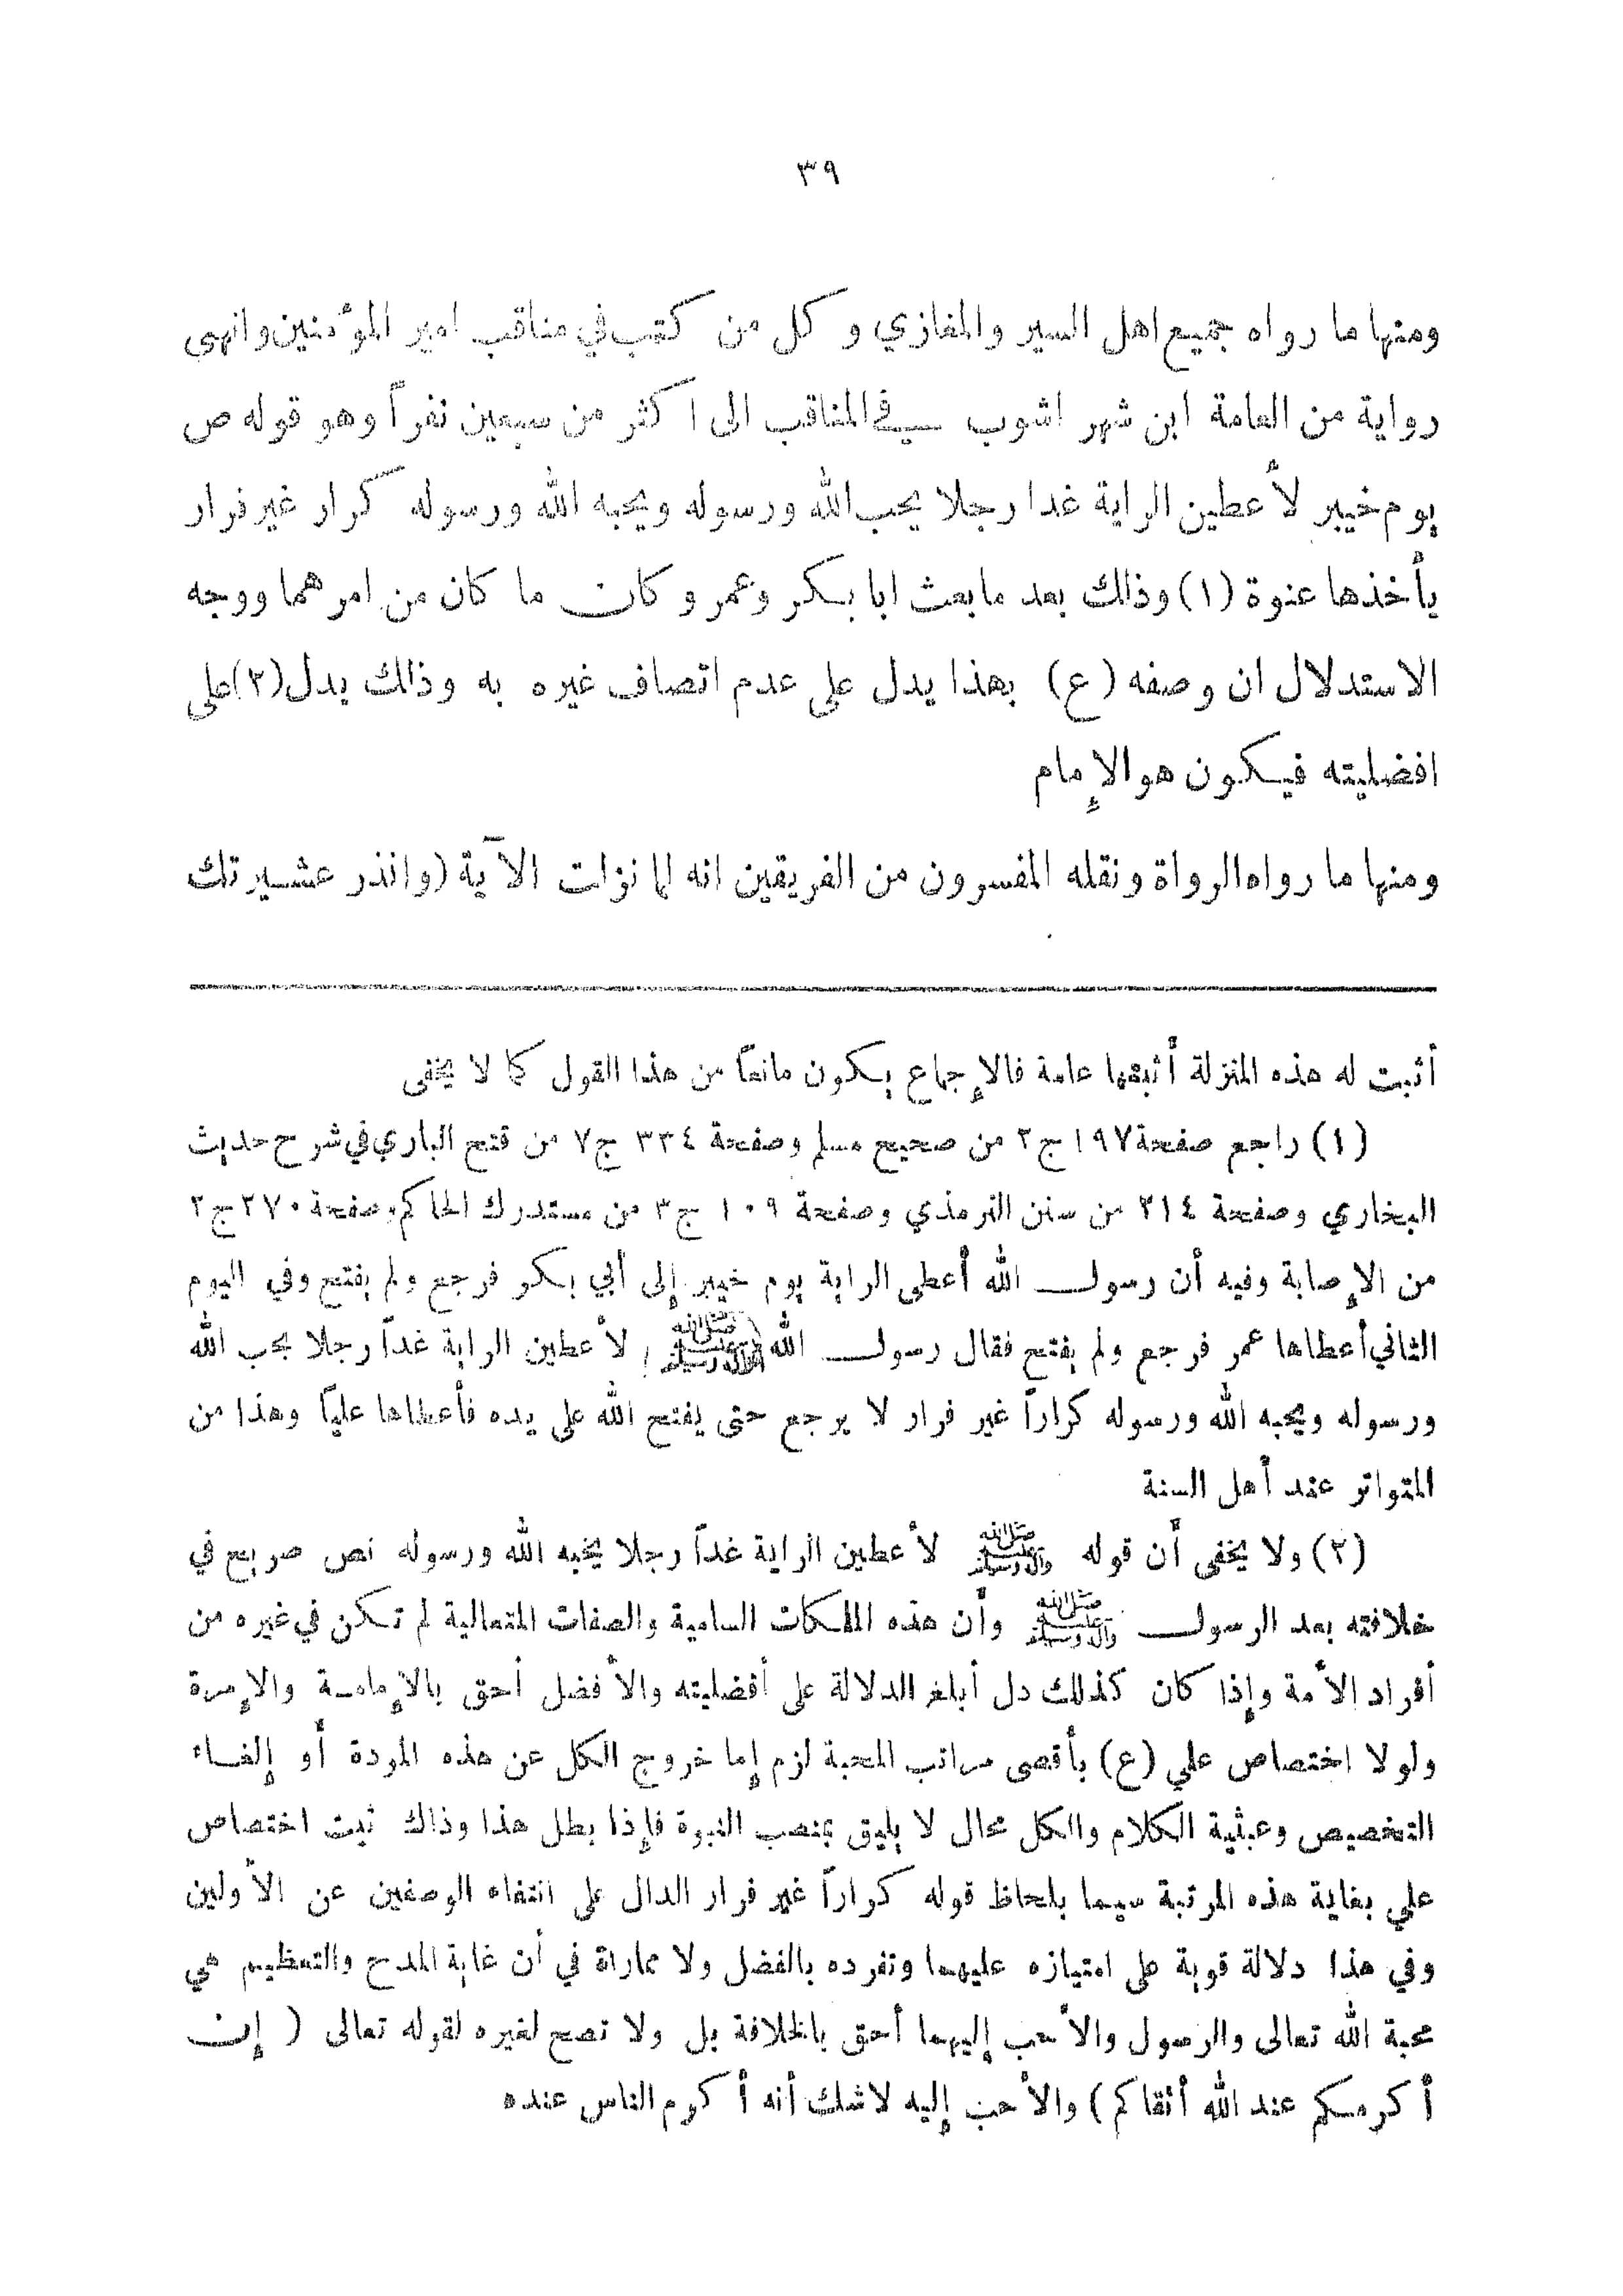 ٣٩
ومنها ما رواه جميع اهل السير والمغازي و كل من كتب في مناقب امير المؤمنين وانهى
رواية من العامة ابن شهر اشوب في المناقب الى اكثر من سبعين نفراً وهو قوله ص
يوم خيبر لأعطين الراية غدا رجلا يحب الله ورسوله ويحبه الله ورسوله كرار غير فرار
يأخذها عنوة (١) وذلك بعد ما بعث ابا بكر وعمر و كان ما كان من امرهما ووجه
الاستدلال ان وصفه (ع) بهذا يدل على عدم اتصاف غيره به وذلك يدل (٢) على
افضليته فيكون هو الإمام
ومنها ما رواه الرواة ونقله المفسرون من الفريقين انه لما نزلت الآية (وانذر عشيرتك
أثبت له هذه المنزلة أثبتها عامة فالإجماع يكون مانعاً من هذا القول كما لا يخفى
(١) راجع صفحة ١٩٧ ج ٢ من صحيح مسلم وصفحة ٣٣٤ ج ٧ من فتح الباري في شرح حديث
البخاري وصفحة ٢١٤ من سنن الترمذي وصفحة ١٠٩ ج ٣ من مستدرك الحاكم وصفحة ٢٧٠ ج ٢
من الإصابة وفيه أن رسول الله أعطى الراية يوم خيبر إلى أبي بكر فرجع ولم يفتح وفي اليوم
الثاني أعطاها عمر فرجع ولم يفتح فقال رسول الله صلى الله عليه وآله وسلم لأعطين الراية غداً رجلا يحب الله
ورسوله ويحبه الله ورسوله كراراً غير فرار لا يرجع حتى يفتح الله على يده فأعطاها علياً وهذا من
المتواتر عند أهل السنة
(٢) ولا يخفى أن قوله صلى الله عليه وآله وسلم لأعطين الراية غداً رجلا يحبه الله ورسوله نص صريح في
خلافته بعد الرسول صلى الله عليه وآله وسلم وأن هذه الملكات السامية والصفات المتعالية لم تكن في غيره من
أفراد الأمة وإذا كان كذلك دل أبلغ الدلالة على أفضليته والأفضل أحق بالإمامة والإمرة
ولولا اختصاص علي (ع) بأقصى مراتب المحبة لزم إما خروج الكل عن هذه المودة أو إلغاء
التخصيص وعبثية الكلام والكل محال لا يليق بمنصب النبوة فإذا بطل هذا وذاك ثبت اختصاص
علي بغاية هذه المرتبة سيما بلحاظ قوله كراراً غير فرار الدال على انتفاء الوصفين عن الأولين
وفي هذا دلالة قوية على امتيازه عليهما وتفرده بالفضل ولا مماراة في أن غاية المدح والتعظيم هي
محبة الله تعالى والرسول والأحب إليهما أحق بالخلافة بل ولا تصح لغيره لقوله تعالى ( إن
أكرمكم عند الله أتقاكم ) والأحب إليه لا شك أنه أكرم الناس عنده